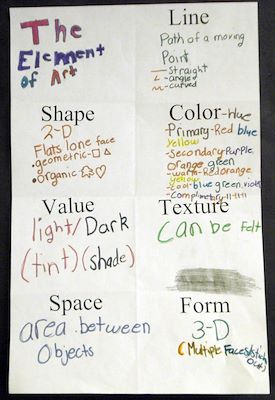 The
Element
of Art
Line
Path of a moving
Point
straight
angled
curved
Shape
2-D
Flats one face
geometric-
Organic
Color-Hue
Primary-Red blue
yellow
-Secondary-Purple
orange green
-warm-Red orange
yellow
-Cool-blue green violet
-Complimetary
Value
light/Dark
(tint)(shade)
Texture
Can be felt
Space
area between
Objects
Form
3-D
(Multiple Faces
out)